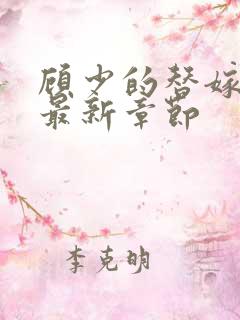 顾少的替嫁
最新章节
李克明